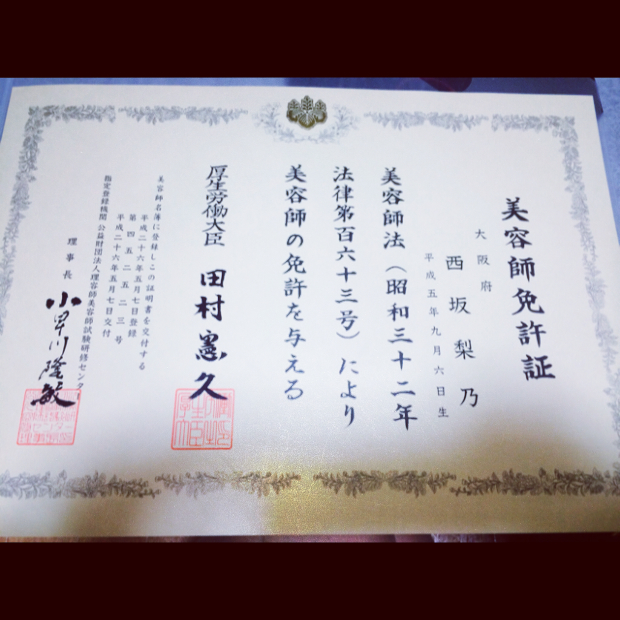 美容師免許証
大阪府
西坂梨乃
平成五年九月六日生
美容師法（昭和三十二年
法律第百六十三号）により
美容師の免許を与える
厚生労働大臣 田村憲久
美容師名簿に登録しこの証明書を交付する
平成二十六年五月七日登録
第四五二五二三号
平成二十六年五月七日交付
指定登録機関 公益財団法人理容師美容師試験研修センター
理事長 小早川隆敏